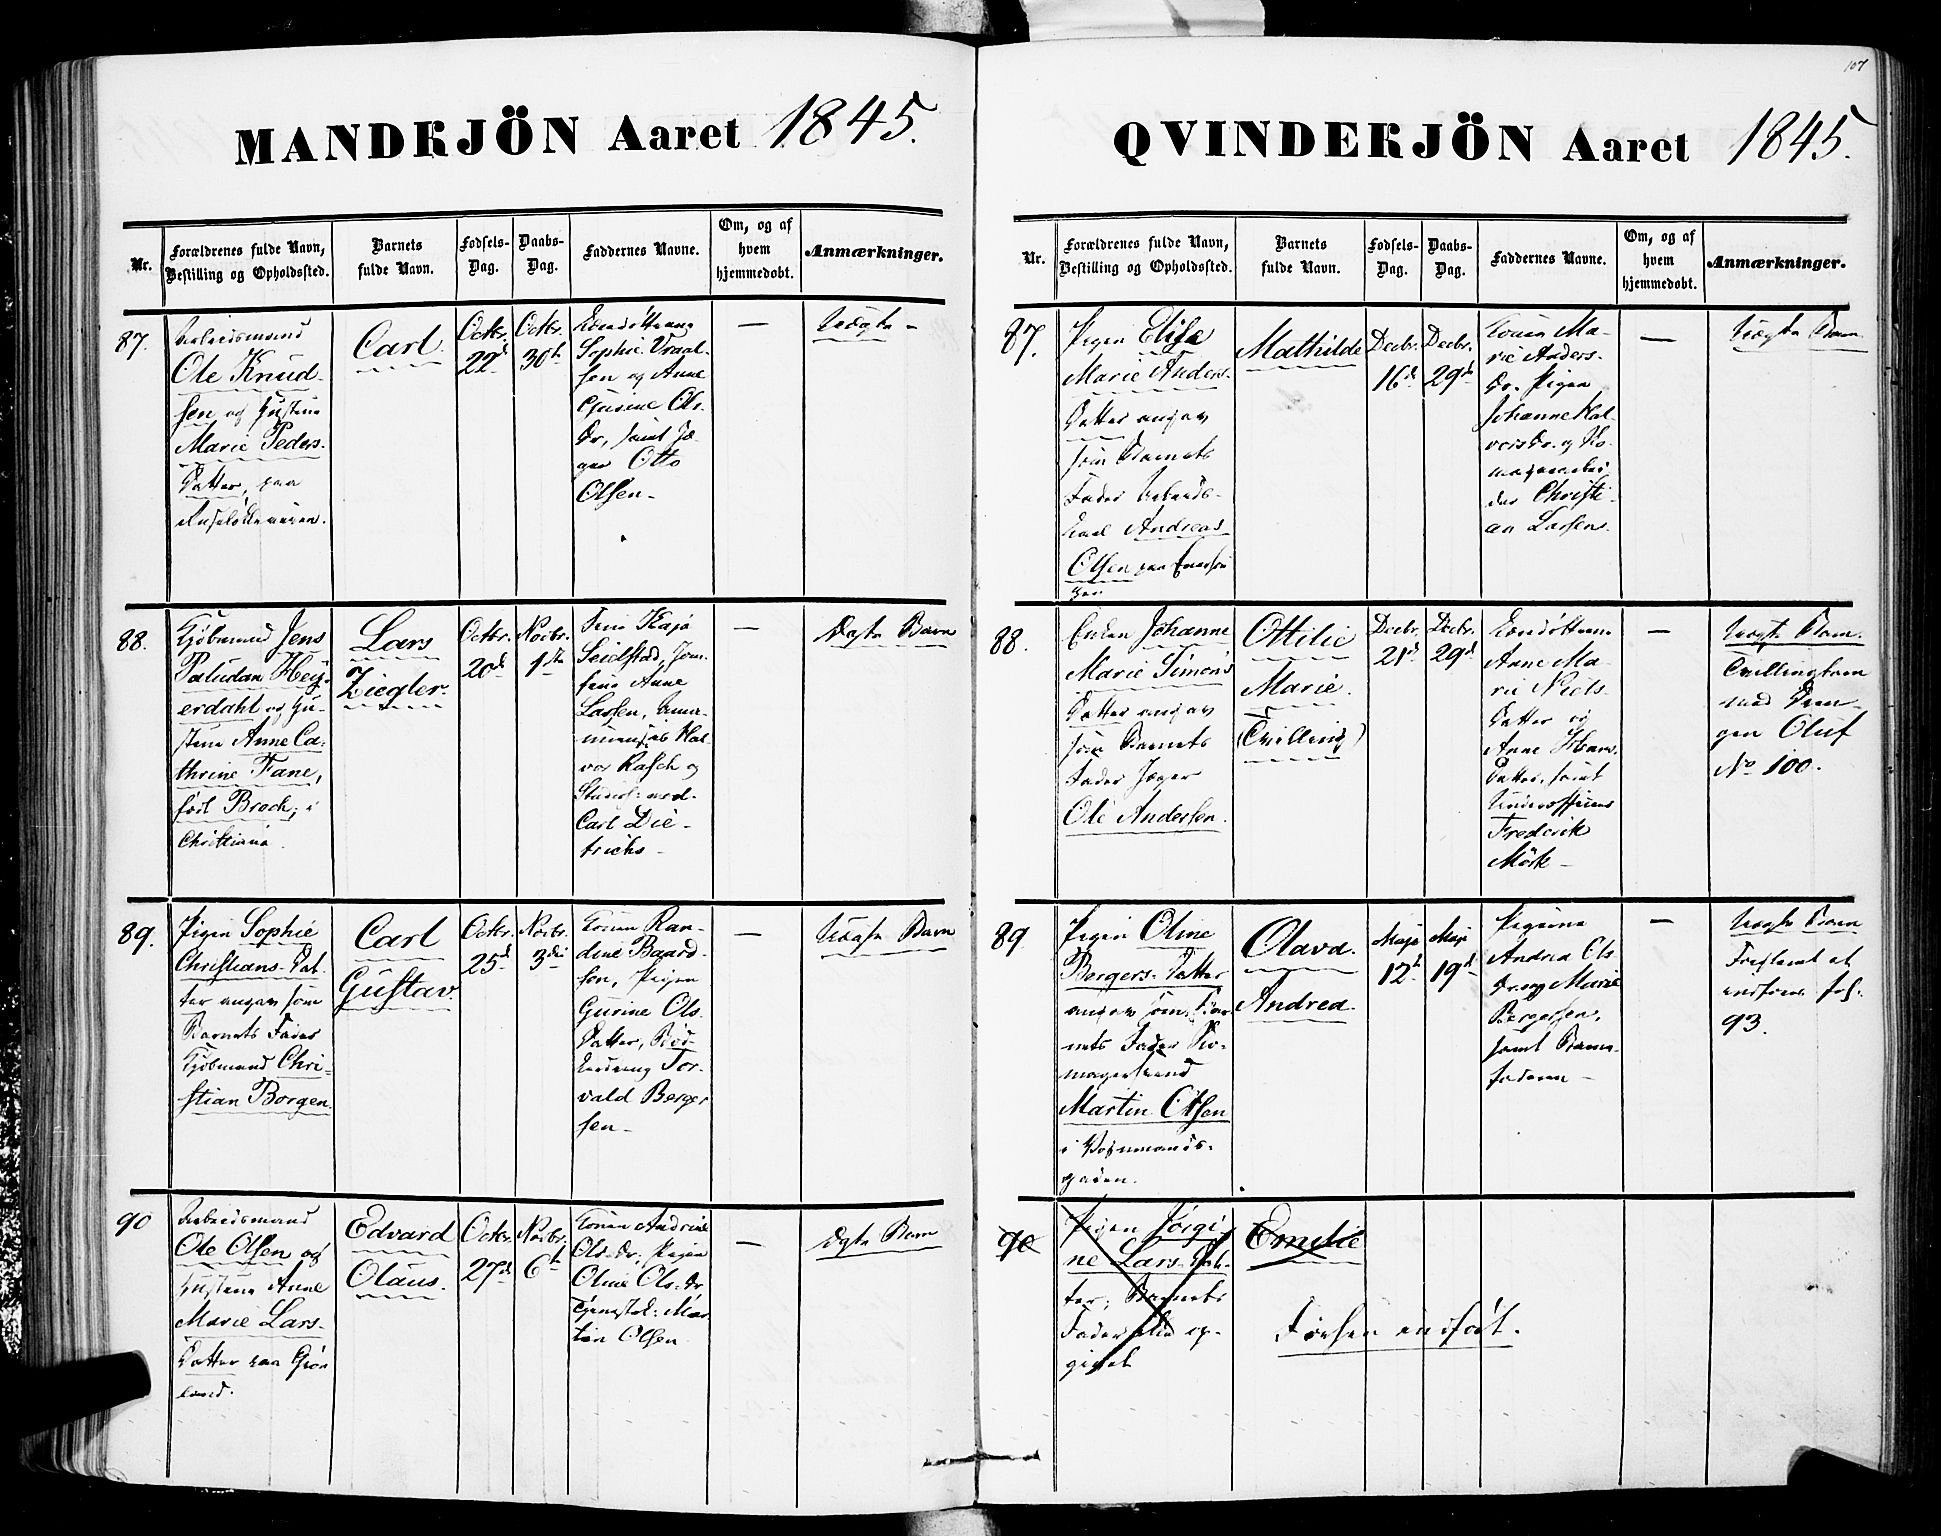 107
MANDKJÖN Aaret 1845.
Nr.
Forældrenes fulde Navn,
Bestilling og Opholdssted.
Barnets
fulde Navn.
Fødsels-
Dag.
Daabs-
Dag.
Faddernes Navne.
Om, og af
hvem
hjemmedøbt.
Anmærkninger.
87.
Arbeidsmand
Ole Knud-
sen og Hustrue
Marie Peders-
Datter, paa
Carl
Octbr.
22d
Octbr.
30te
Sophie Vraal-
sen og Anne
Gurine Ols-
Dr, samt Jæ-
ger Otto
Olsen-
—
Uægte -
88.
Kjøbmand Jens
Paludan Hey-
erdahl og Hu-
strue Anne Ca-
thrine Fane,
født Brock, i
Christiania.
Lars
Ziegler.
Octbr.
20d
Novbr.
1ste
Frue Kaja
Seidlstad, Jom-
frue Anne
Lassen, Amа-
nuensis Hal-
vor Rasch og
Studios: med.
Carl Die-
trichs -
—
Ægte Barn
89.
Pigen Sophie
Christians-Dat-
ter angav som
Barnets Fader
Kjøbmand Chri-
stian Borgen.
Carl
Gustav.
Octbr.
25d
Novbr.
3die
Konen Ran-
dine Baard-
sen, Pigen
Gurine Ols-
Datter,
Tor-
vald Berger
sen-
—
Uægte Barn
90
Arbeidsmand
Ole Olsen og
Hustrue Anne
Marie Lars-
Datter paa Grøn
land.
Edvard
Olaus.
Octbr.
27d
Novbr.
6te
Konen Andrine
Ols-Dr, Pigen
Oline Ols-Dr
Tjenestek: Mar
tin Olsen.
—
Ægte Barn
QVINDEKJÖN Aaret 1845.
Nr.
Forældrenes fulde Navn,
Bestilling og Opholdssted.
Barnets
fulde Navn.
Fødsels-
Dag.
Daabs-
Dag.
Faddernes Navne.
Om, og af
hvem
hjemmedøbt.
Anmærkninger.
87.
Pigen Elise
Marie Anders-
Datter angav
som Barnets
Fader Arbeids-
karl Andreas
Olsen paa
Mathilde
Decbr.
16d
Decbr.
29d
Konen Ma-
rie Anders-
Dr. Pigen
Johanne Hal-
vorsDr. og Sko-
magerarbei
der Christi-
an Larsen.
—
Uægte Barn
88.
Enken Johanne
Marie Simons
Datter angav
som Barnets
Fader Jæger
Ole Andersen.
Ottilie
Marie.
(Tvilling)
Decbr.
21d
Decbr.
29d
Anne Ma-
rie Niels-
Datter og
Anne Hans-
Datter, samt
Underofficeer
Frederik
Mørk -
—
Uægte Barn.
Tvillingbarn
med Dren-
gen Oluf
No 100.
89
Pigen Oline
Bergers-Datter
angav som Bar
nets Fader Sko-
magersvend
Martin Olsen
i Vognmands-
gaden.
Olava
Andrea.
Maji
12te
Maji
19d
Pigerne
Andrea Ols
Dr. og Marie
Bergersen,
samt Barne-
faderen -
—
Uægte Barn
Forglemt at
indføres fol:
93.
90
Pigen Jörgi-
ne Lars-Dat-
ter, Barnets
Fader ikke op-
givet
Emilie
Forhen indført.